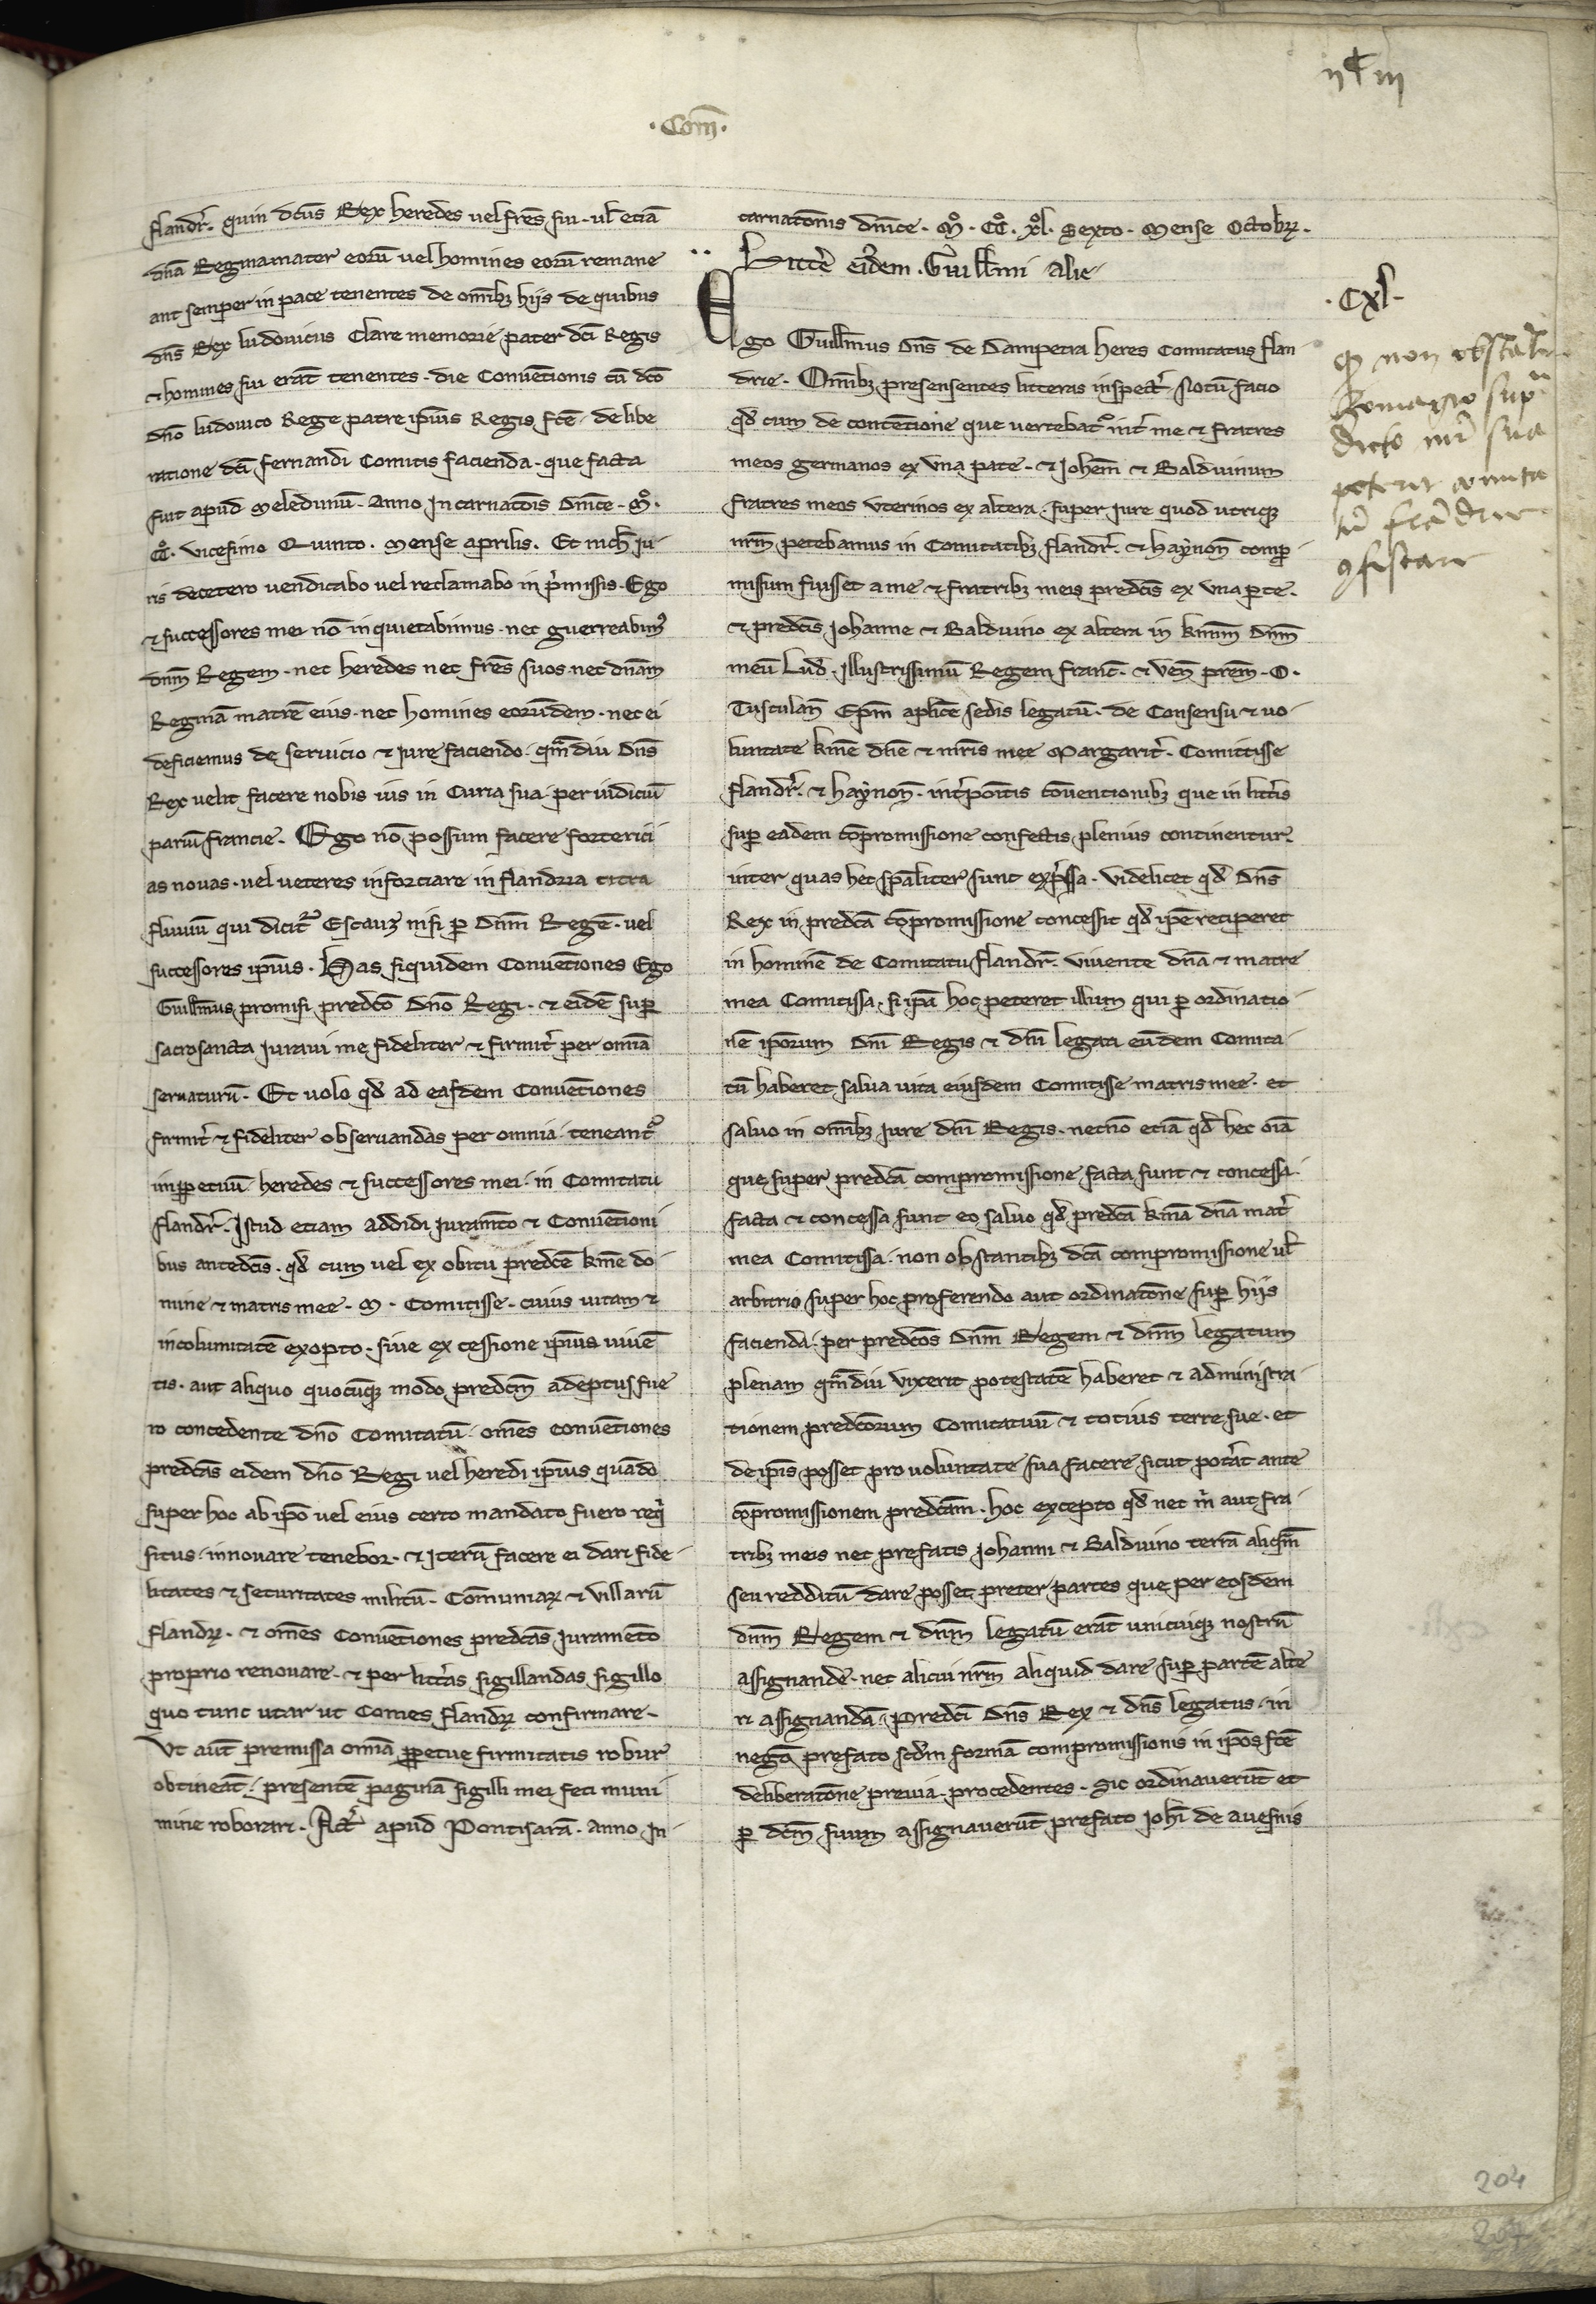 ·Com̄·
flandr̃. quin dc̄us Rex heredes uel fr̄es sui. ul̄ etiā
dn̄a Regina mater eorū uel homines eorū remane
ant semper in pace tenentes de om̄ibꝫ hijs de quibus
dn̄s Rex ludouicus Clare memorie pater dc̄i Regis
⁊ homines sui erāt tenentes. die Conuētionis cū dc̄o
dn̄o ludouico Rege patre ipīus Regis fc̄e. de libe
ratione dc̄i fernandi Comitis facienda. que facta
fuit apud Meledunū. Anno Incarnatōis dn̄ice. M̊.
CC̊. vicesimo Quinto. Mense aprilis. Et nich̄ Iu
ris decetero uendicabo uel reclamabo in p̄missis. Ego
⁊ successores mei nō inquietabimus. nec guerreabimꝰ
dn̄m Regem. nec heredes nec fr̄es suos. nec dn̄am
Reginā matrē eius. nec homines eorūdem. nec ei
deficiemus de seruicio ⁊ iure faciendo. qm̄diu dn̄s
Rex uelit facere nobis ius in Curia sua per iudiciū
pariū francie. Ego nō possum facere fortericí
as nouas. uel ueteres inforciare in flandria citra
fluuiū qui dicit᷑ Escauz nisi ꝑ dn̄m Regē. uel
successores ipīus. Has siquidem Conuētiones Ego
Guill̄mus promisi predc̄o dn̄o Regi. ⁊ eidē suꝑ
sacrosancta iuraui me fideliter ⁊ firmit̄ per om̄ia
seruaturū. Et uolo qd̄ ad easdem Conuētiones
firmit̄ ⁊ fideliter obseruandas per omnia teneant᷑
inꝑpetuū heredes ⁊ successores mei. in Comitatu
flandr̃. Istud etiam addidi iuramēto ⁊ Conuētioni
bus antedc̄is. qd̄ cum uel ex obitu predc̄e kme do
mine ⁊ matris mee. M. Comitisse. cuius uitam ⁊
incolumitatē exopto. siue ex cessione ipīus uiuē
tis. aut aliquo quocūqꝫ modo predc̄m adeptus fue
ro concedente dn̄o Comitatū. om̄es conuētiones
predc̄as eidem dn̄o Regi uel heredi ipīus quādo
super hoc ab ipō uel eius certo mandato fuero reqi
situs. innouare tenebor. ⁊ iterū facere ei dari fide
litates ⁊ securitates militū. Cōmuniaꝝ ⁊ villarū
flandꝝ. ⁊ om̄es Conuētiones predc̄as iuramēto
proprio renouare. ⁊ per litt̄as sigillandas sigillo
quo tunc utar ut Comes flandꝝ confirmare.
Vt aūt premissa om̄ia ꝑpetue firmitatis robur
obtineāt. presentē paginā sigilli mei feci muni
mine roborari. Act̄ apud Pontisarā. Anno In
carnatōnis dn̄ice. M̊. CC̊. xl̊. Sexto. Mense Octobꝝ.
Litt̄e eiꝰdem Guill̄mi alie
Ego Guill̄mus dn̄s de Dampetra heres Comitatus flan
drie. Om̄ibꝫ presensentes litteras inspect̄. Notū facio
qd̄ cum de contētione que uertebat᷑ int̄ me ⁊ fratres
meos germanos ex vna pate. ⁊ Joh̄em ⁊ Balduinum
fratres meos vterinos ex altera. super iure quod utrīqꝫ
nr̄m petebamus in Comitatibꝫ flandr̃. ⁊ haynoñ comꝑ
missum fuisset a me ⁊ fratribꝫ meis predc̄is ex vna parte.
⁊ predc̄is Johanne ⁊ Balduino ex altera in kmm dn̄m
meū Lud̄. Illustrissimū Regem franc̄. ⁊ ven̄ pr̄em. O.
Tusculan̄ Ep̄m ap̄lice sedis legatū. de Consensu ⁊ uo
luntate kme dn̄e ⁊ mr̄is mee Margarit̄. Comitisse
flandr̃. ⁊ haynon̄. int̄poitis conuentionibꝫ que in litt̄is
suꝑ eadem cōpromissione confectis plenius continentur.
inter quas hec sp̄aliter sunt exp̄ssa. videlicet qd̄ dn̄s
Rex in predc̄a cōpromissione concessit qd̄ ip̄e reciperet
in hominē de Comitatu flandr̃. viuente dn̄a ⁊ matre
mea Comitissa. si ip̄a hoc peteret illum qui ꝑ ordinatio
nē ipōrum dn̄i Regis ⁊ dn̄i legati eūdem Comita
tū haberet salua uita eiusdem Comitisse matris mee. et
saluo in om̄ibꝫ iure dn̄i Regis. necnō etiā qd̄ hec oīa
que super predc̄a compromissione facta sunt ⁊ concessa.
facta ⁊ concessa sunt eo saluo qd̄ predc̄a kma dn̄a mat̄
mea Comitissa. non obstantibꝫ dc̄a compromissione ul̄
arbitrio super hoc proferendo aut ordinatōne suꝑ hijs
facienda. per predc̄os dn̄m Regem ⁊ dn̄m legatum
plenam qm̄diu vixerit potestatē haberet ⁊ administra
tionem predc̄orum Comitatuū ⁊ totius terre sue. et
de ip̄is posset pro uoluntate sua facere sicut pot̄at ante
cōpromissionem predc̄am. hoc excepto qd̄ nec m̄ aut fra
tribꝫ meis nec prefatis Johanni ⁊ Balduino terrā aliqm̄
seu redditū dare posset preter partes que per eosdem
dn̄m Regem ⁊ dn̄m legatū erāt unicuiqꝫ nostrū
assignande. nec alicui nr̄m aliquid dare suꝑ partē alte
ri assignandā. Predc̄i dn̄s Rex ⁊ dn̄s legatus. in
negō prefato scd̄m formā compromissionis in ipōs fc̄e
deliberatōne preuia. procedentes. Sic ordinauerūt et
ꝑ dc̄m suum assignauerūt prefato Joh̄i de auesnis
·Cxl·
ꝙ non obstan̄
dicto sua
poterit comita
flādrie
ꝯfiscari
204